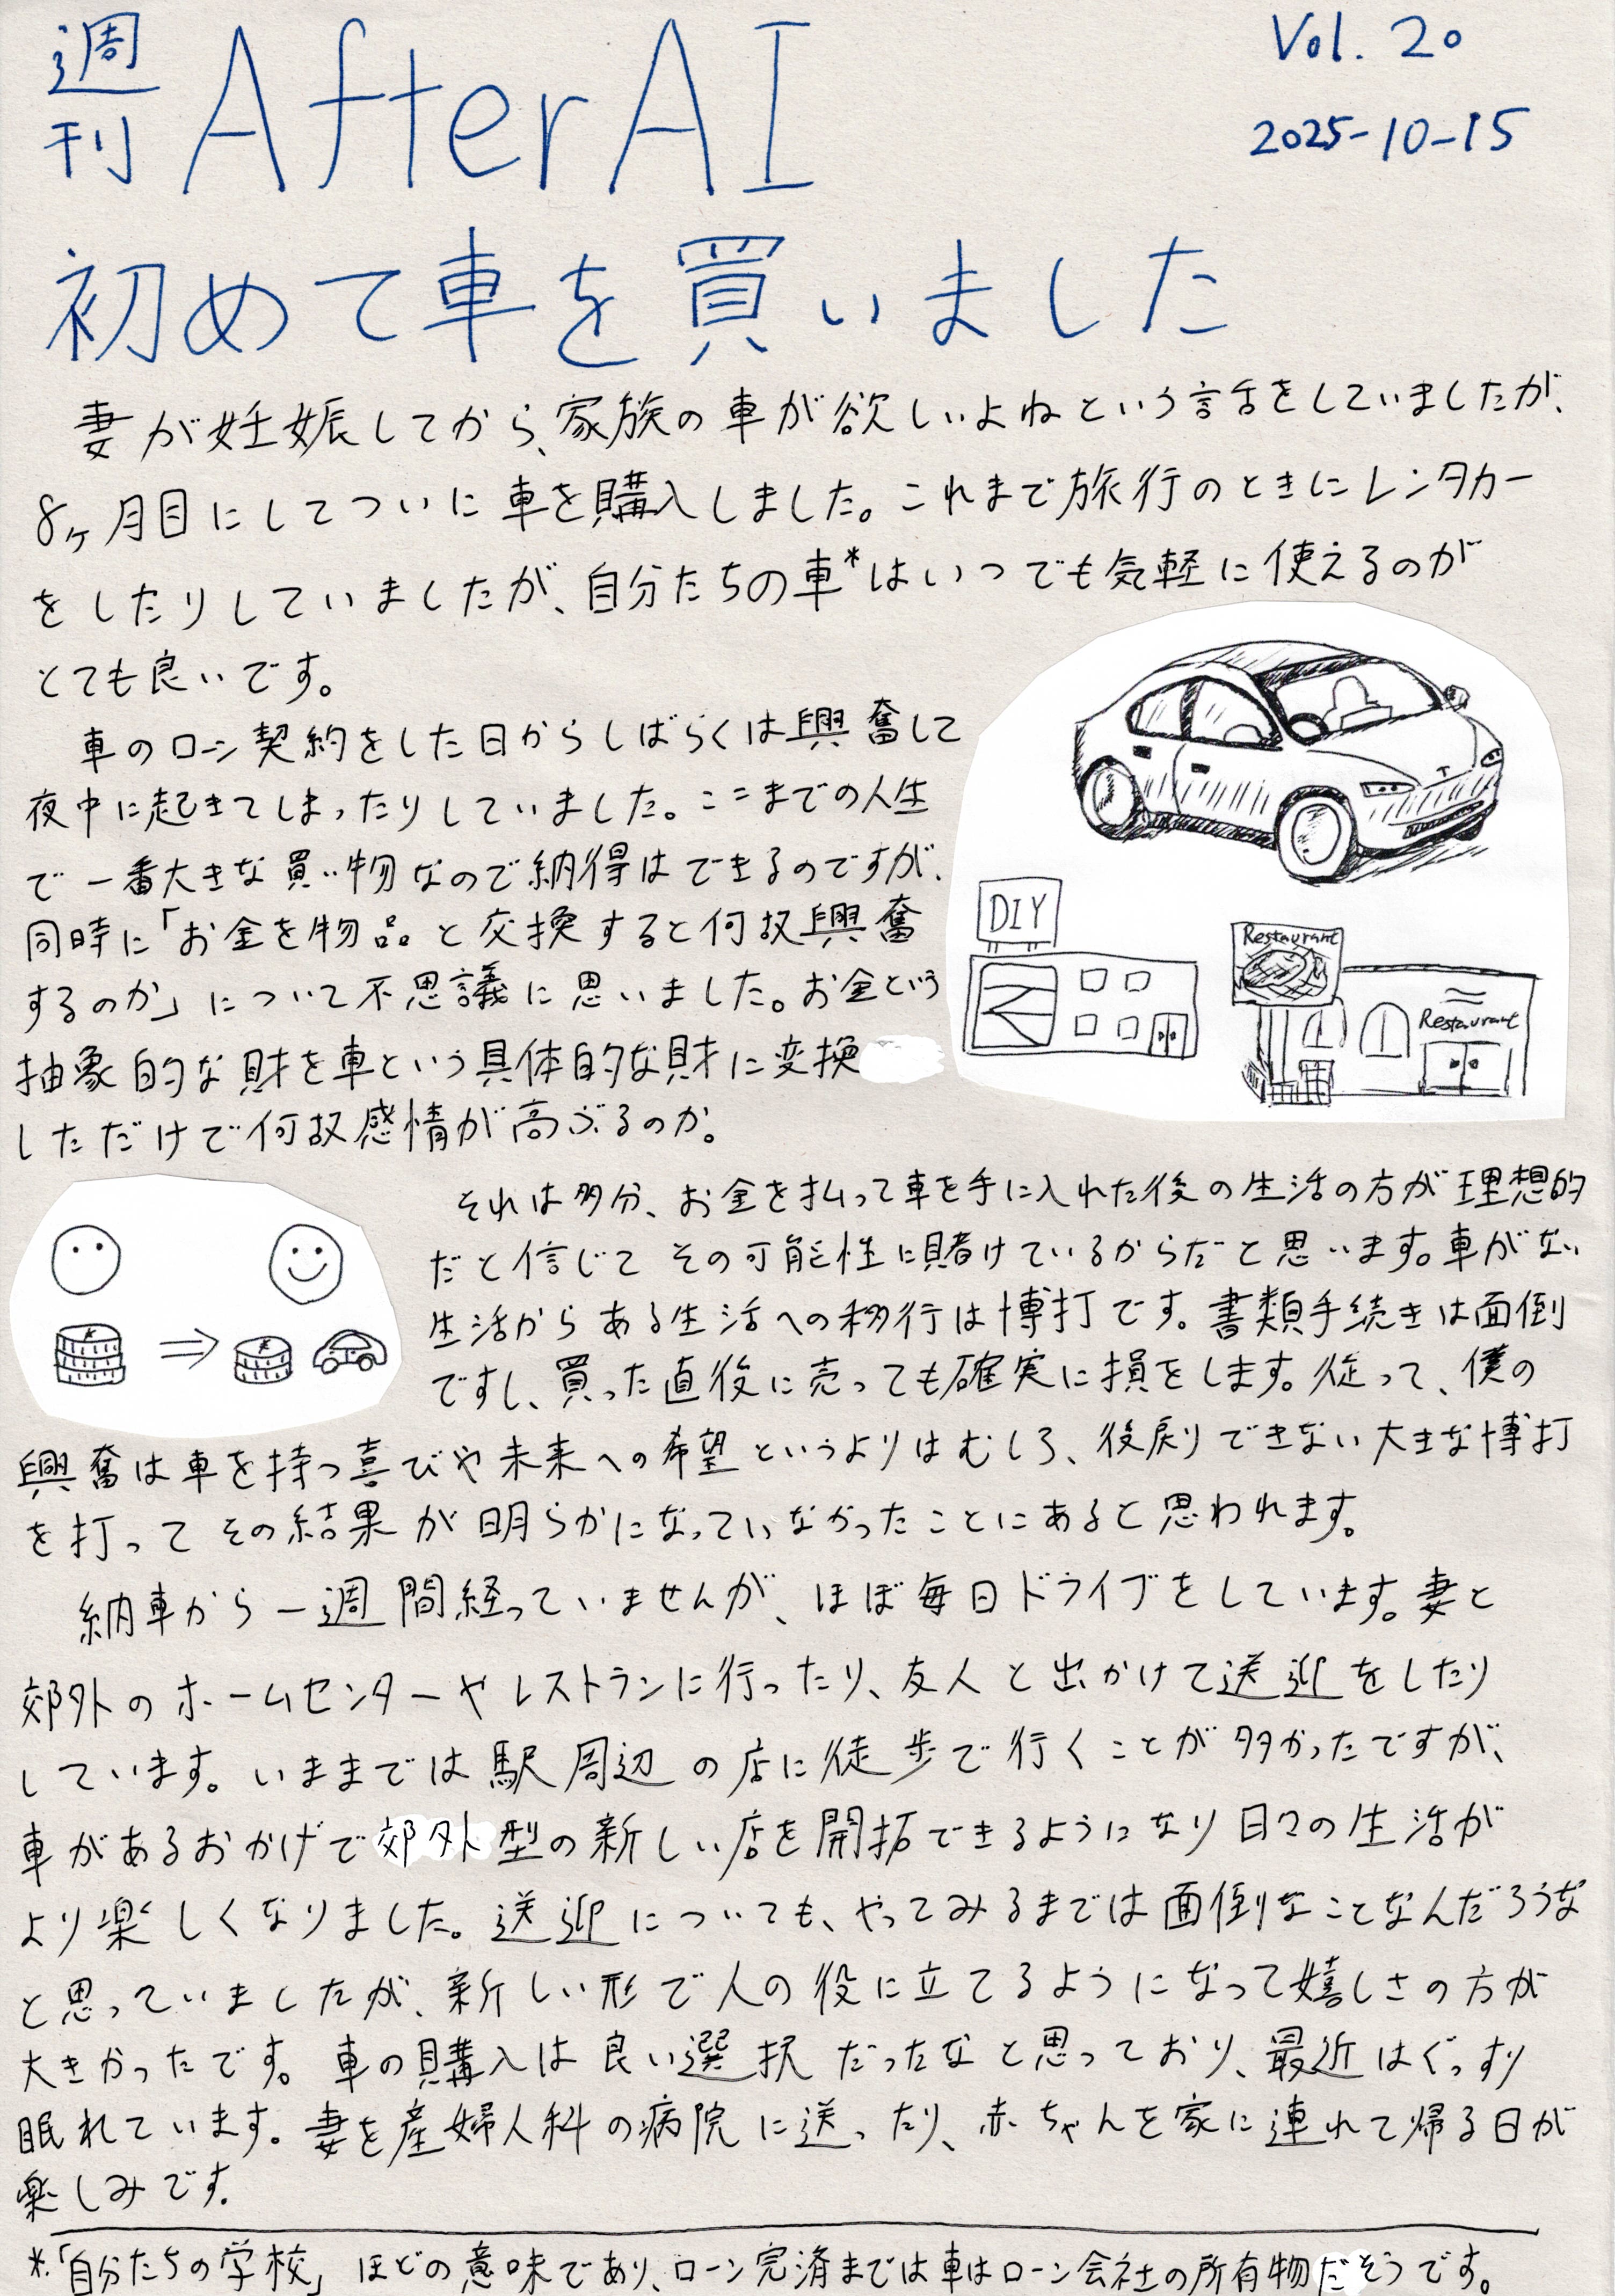 週刊 AfterAI
Vol. 20
2025-10-15
初めて車を買いました
妻が妊娠してから、家族の車が欲しいよねという話をしていましたが、
8ヶ月目にしてついに車を購入しました。これまで旅行のときにレンタカー
をしたりしていましたが、自分たちの車*はいつでも気軽に使えるのが
とても良いです。
車のローン契約をした日からしばらくは興奮して
夜中に起きてしまったりしていました。ここまでの人生
で一番大きな買い物なので納得はできるのですが、
同時に「お金を物品と交換すると何故興奮
するのか」について不思議に思いました。お金という
抽象的な財を車という具体的な財に変換
しただけで何故感情が高ぶるのか。
DIY
Restaurant
Restaurant
それは多分、お金を払って車を手に入れた後の生活の方が理想的
だと信じてその可能性に賭けているからだと思います。車がない
生活からある生活への移行は博打です。書類手続きは面倒
ですし、買った直後に売っても確実に損をします。従って、僕の
興奮は車を持つ喜びや未来への希望というよりはむしろ、後戻りできない大きな博打
を打ってその結果が明らかになっていなかったことにあると思われます。
納車から一週間経っていませんが、ほぼ毎日ドライブをしています。妻と
郊外のホームセンターやレストランに行ったり、友人と出かけて送迎をしたり
しています。いままでは駅周辺の店に徒歩で行くことが多かったですが、
車があるおかげで郊外型の新しい店を開拓できるようになり日々の生活が
より楽しくなりました。送迎についても、やってみるまでは面倒なことなんだろうな
と思っていましたが、新しい形で人の役に立てるようになって嬉しさの方が
大きかったです。車の購入は良い選択だったなと思っており、最近はぐっすり
眠れています。妻を産婦人科の病院に送ったり、赤ちゃんを家に連れて帰る日が
楽しみです。
*.「自分たちの学校」ほどの意味であり、ローン完済までは車はローン会社の所有物だそうです。